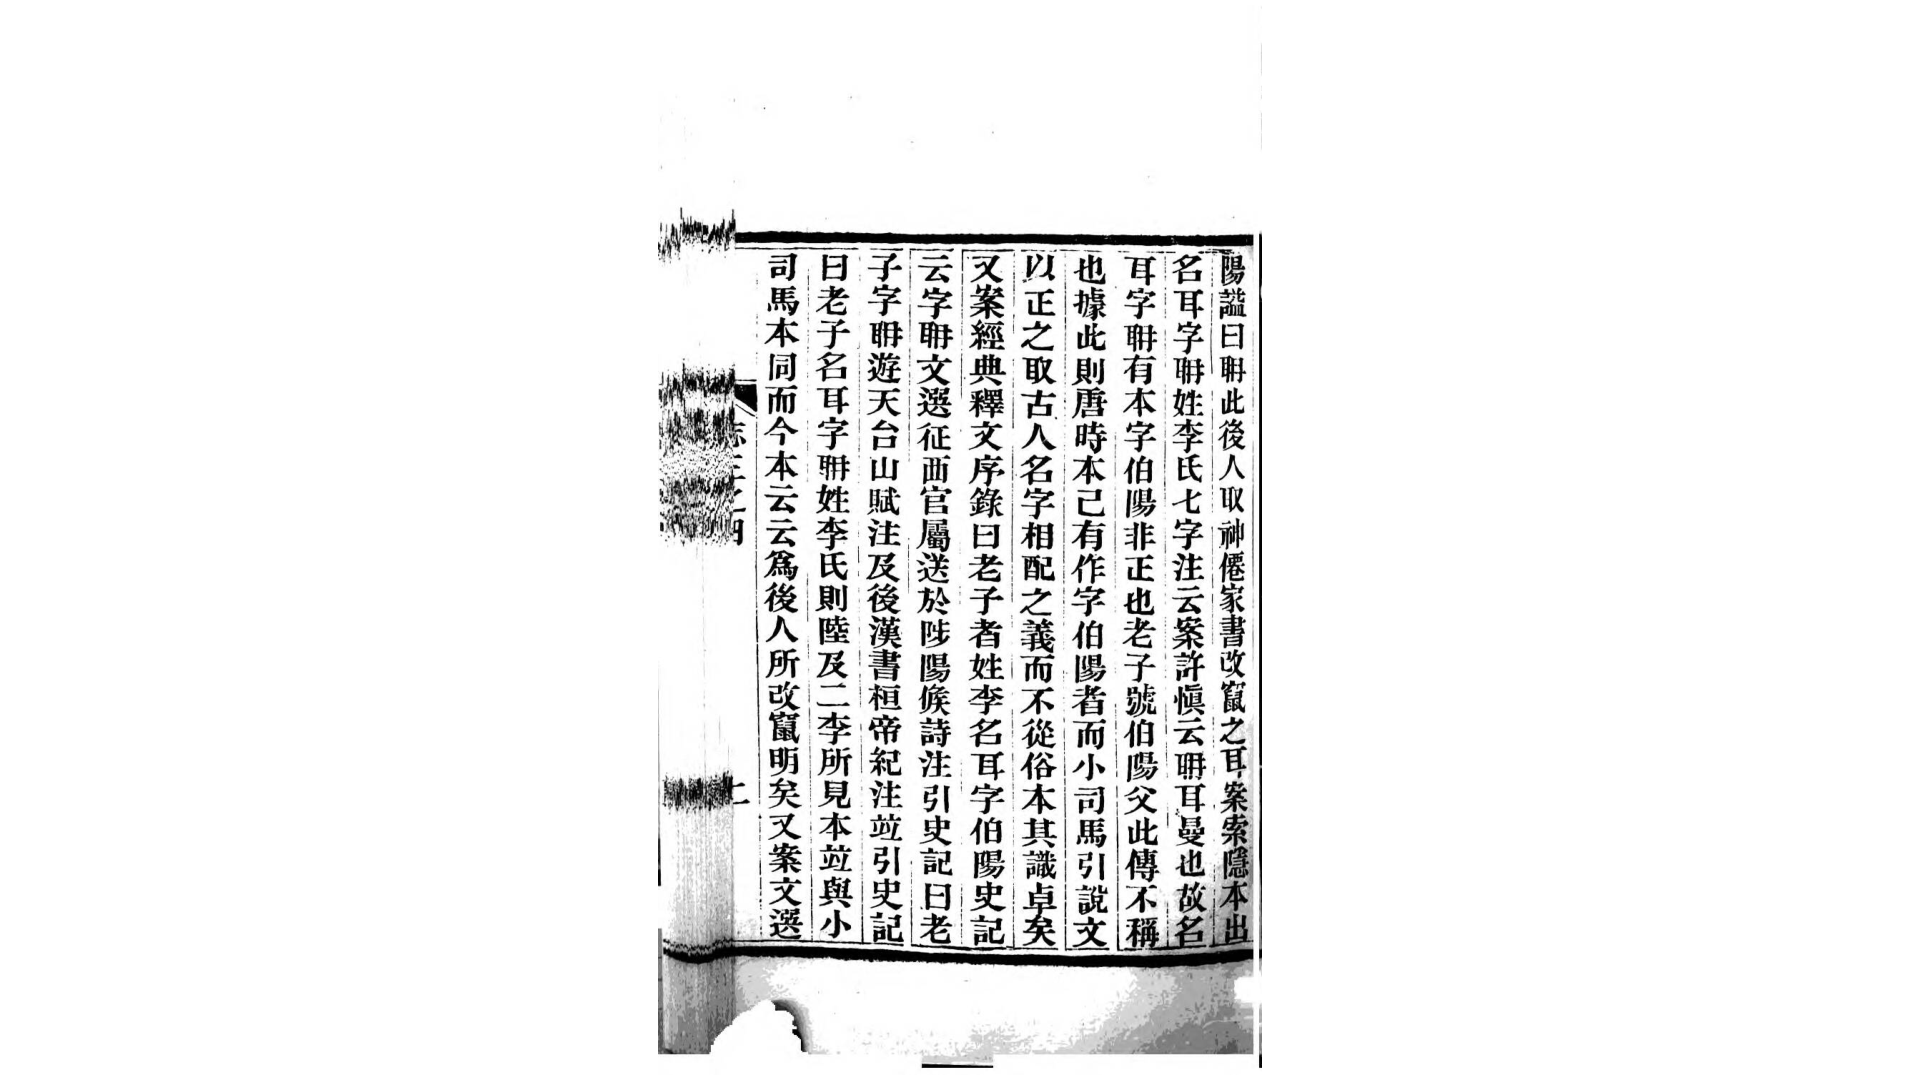 陽謚曰聃此後人取神僊家書改竄之耳案索隱本出
名耳字聃姓李氏七字注云案許慎云聃耳曼也故名
耳字聃有本字伯陽非正也老子號伯陽父此傳不稱
也據此則唐時本已有作字伯陽者而小司馬引說文
以正之取古人名字相配之義而不從俗本其識卓矣
又案經典釋文序錄曰老子者姓李名耳字伯陽史記
云字聃文選征西官屬送於陟陽候詩注引史記曰老
子字聃遊天台山賦注及後漢書桓帝紀注竝引史記
曰老子名耳字聃姓李氏則陸及二李所見本竝與小
司馬本同而今本云云爲後人所改竄明矣又案文選